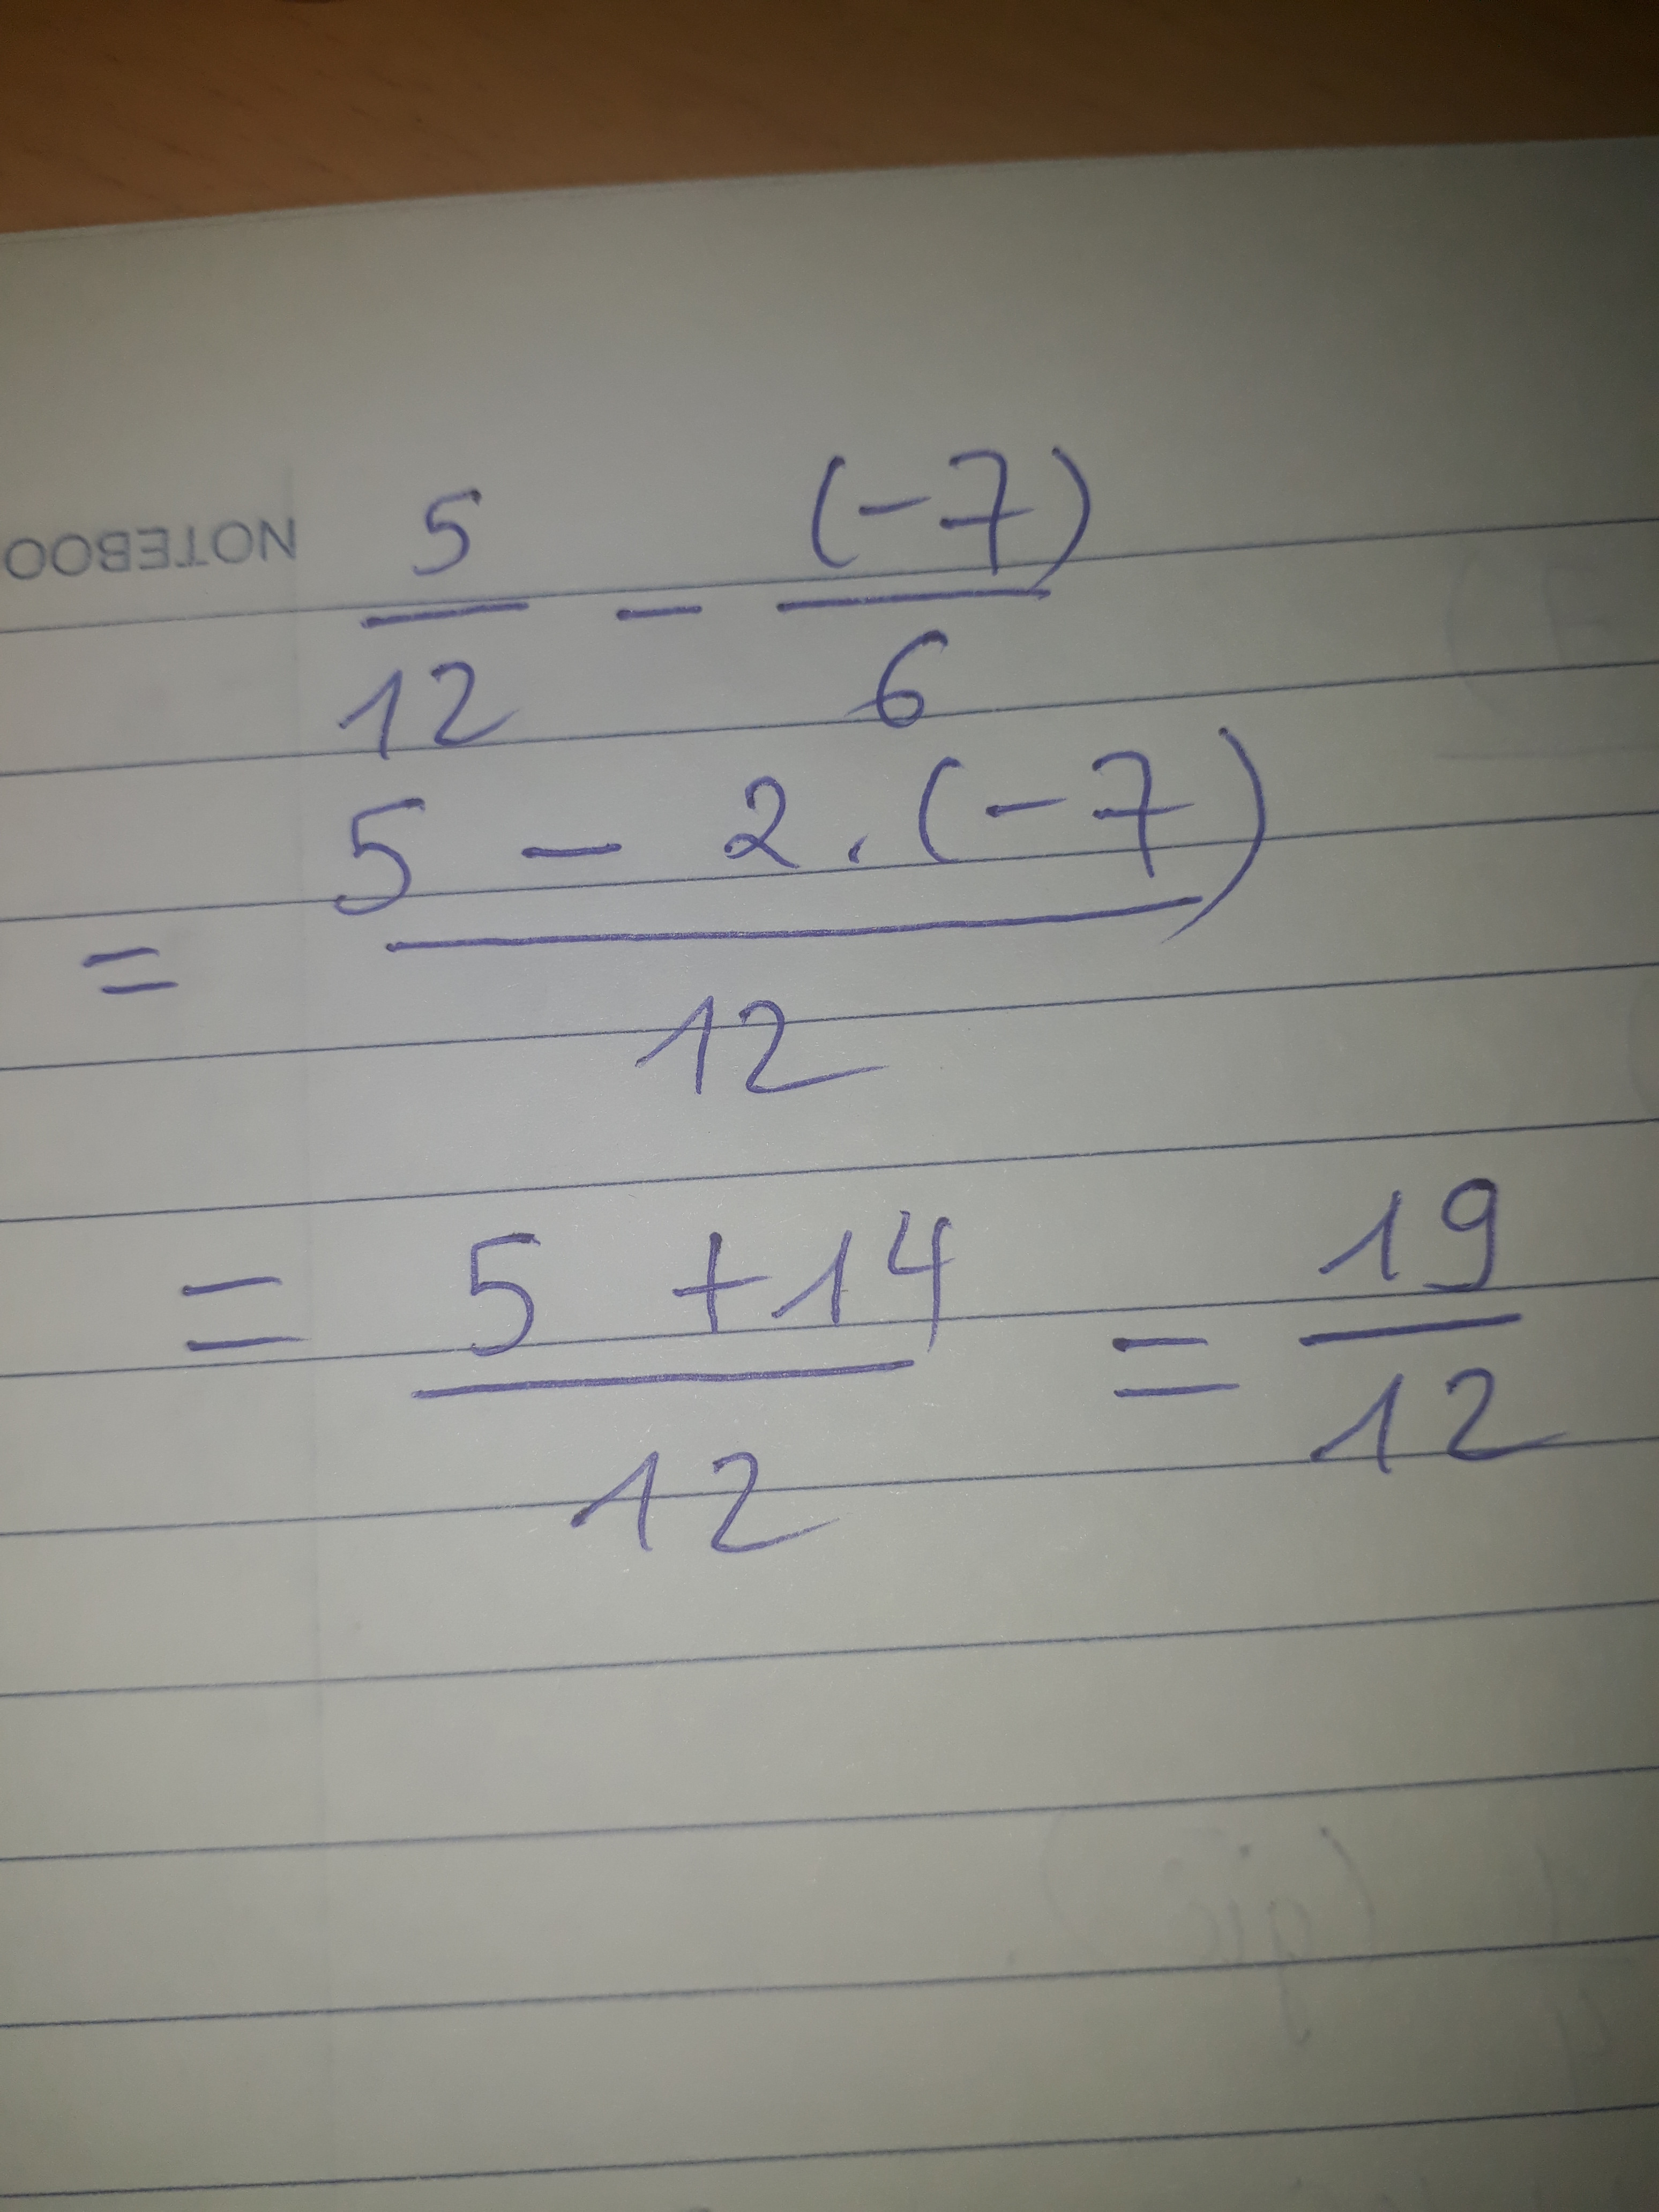 NOTEBOO
5/12 - (-7)/6
= 5 - 2 . (-7) / 12
= 5 + 14 / 12 = 19/12